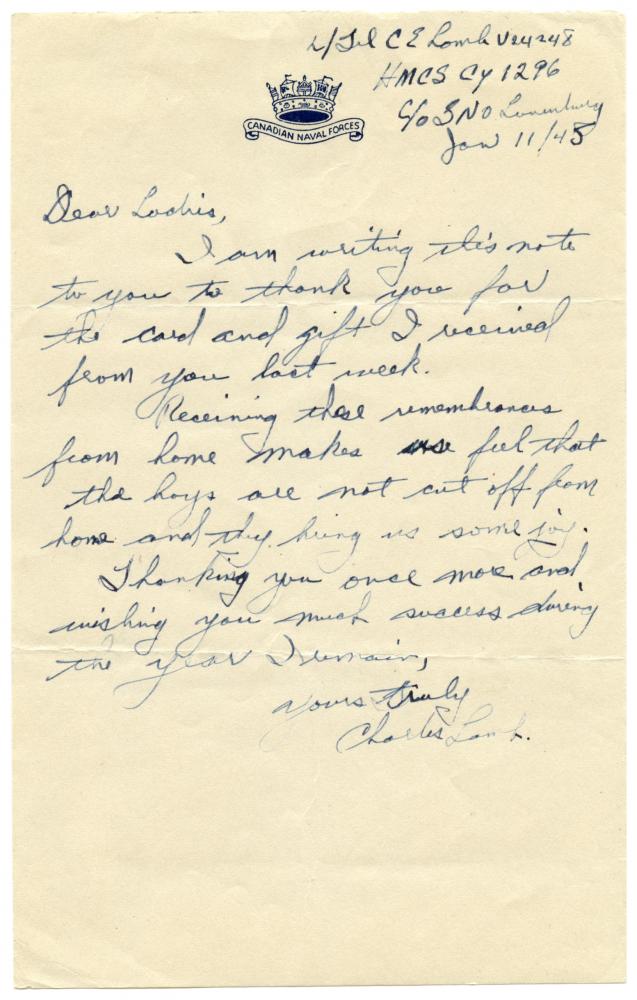 L/Tel C E Lamb V24248
HMCS Cy 1296
C/o S N O Lunenburg
Jan 11/45
CANADIAN NAVAL FORCES
Dear Ladies,
I am writing this note
to you to thank you for
the card and gift I received
from you last week.
Receiving these remembrances
from home makes us feel that
the boys are not cut off from
home and they bring us some joy.
Thanking you once more and
wishing you much success during
the year I remain,
Yours truly
Charles Lamb.